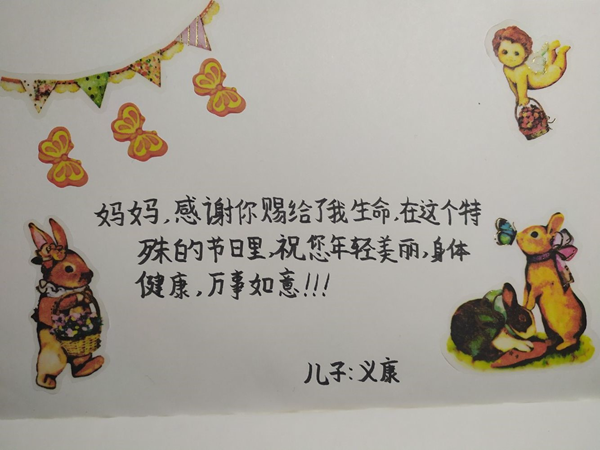 妈妈,感谢你赐给了我生命,在这个特
殊的节日里,祝您年轻美丽,身体
健康,万事如意!!!
儿子:义康